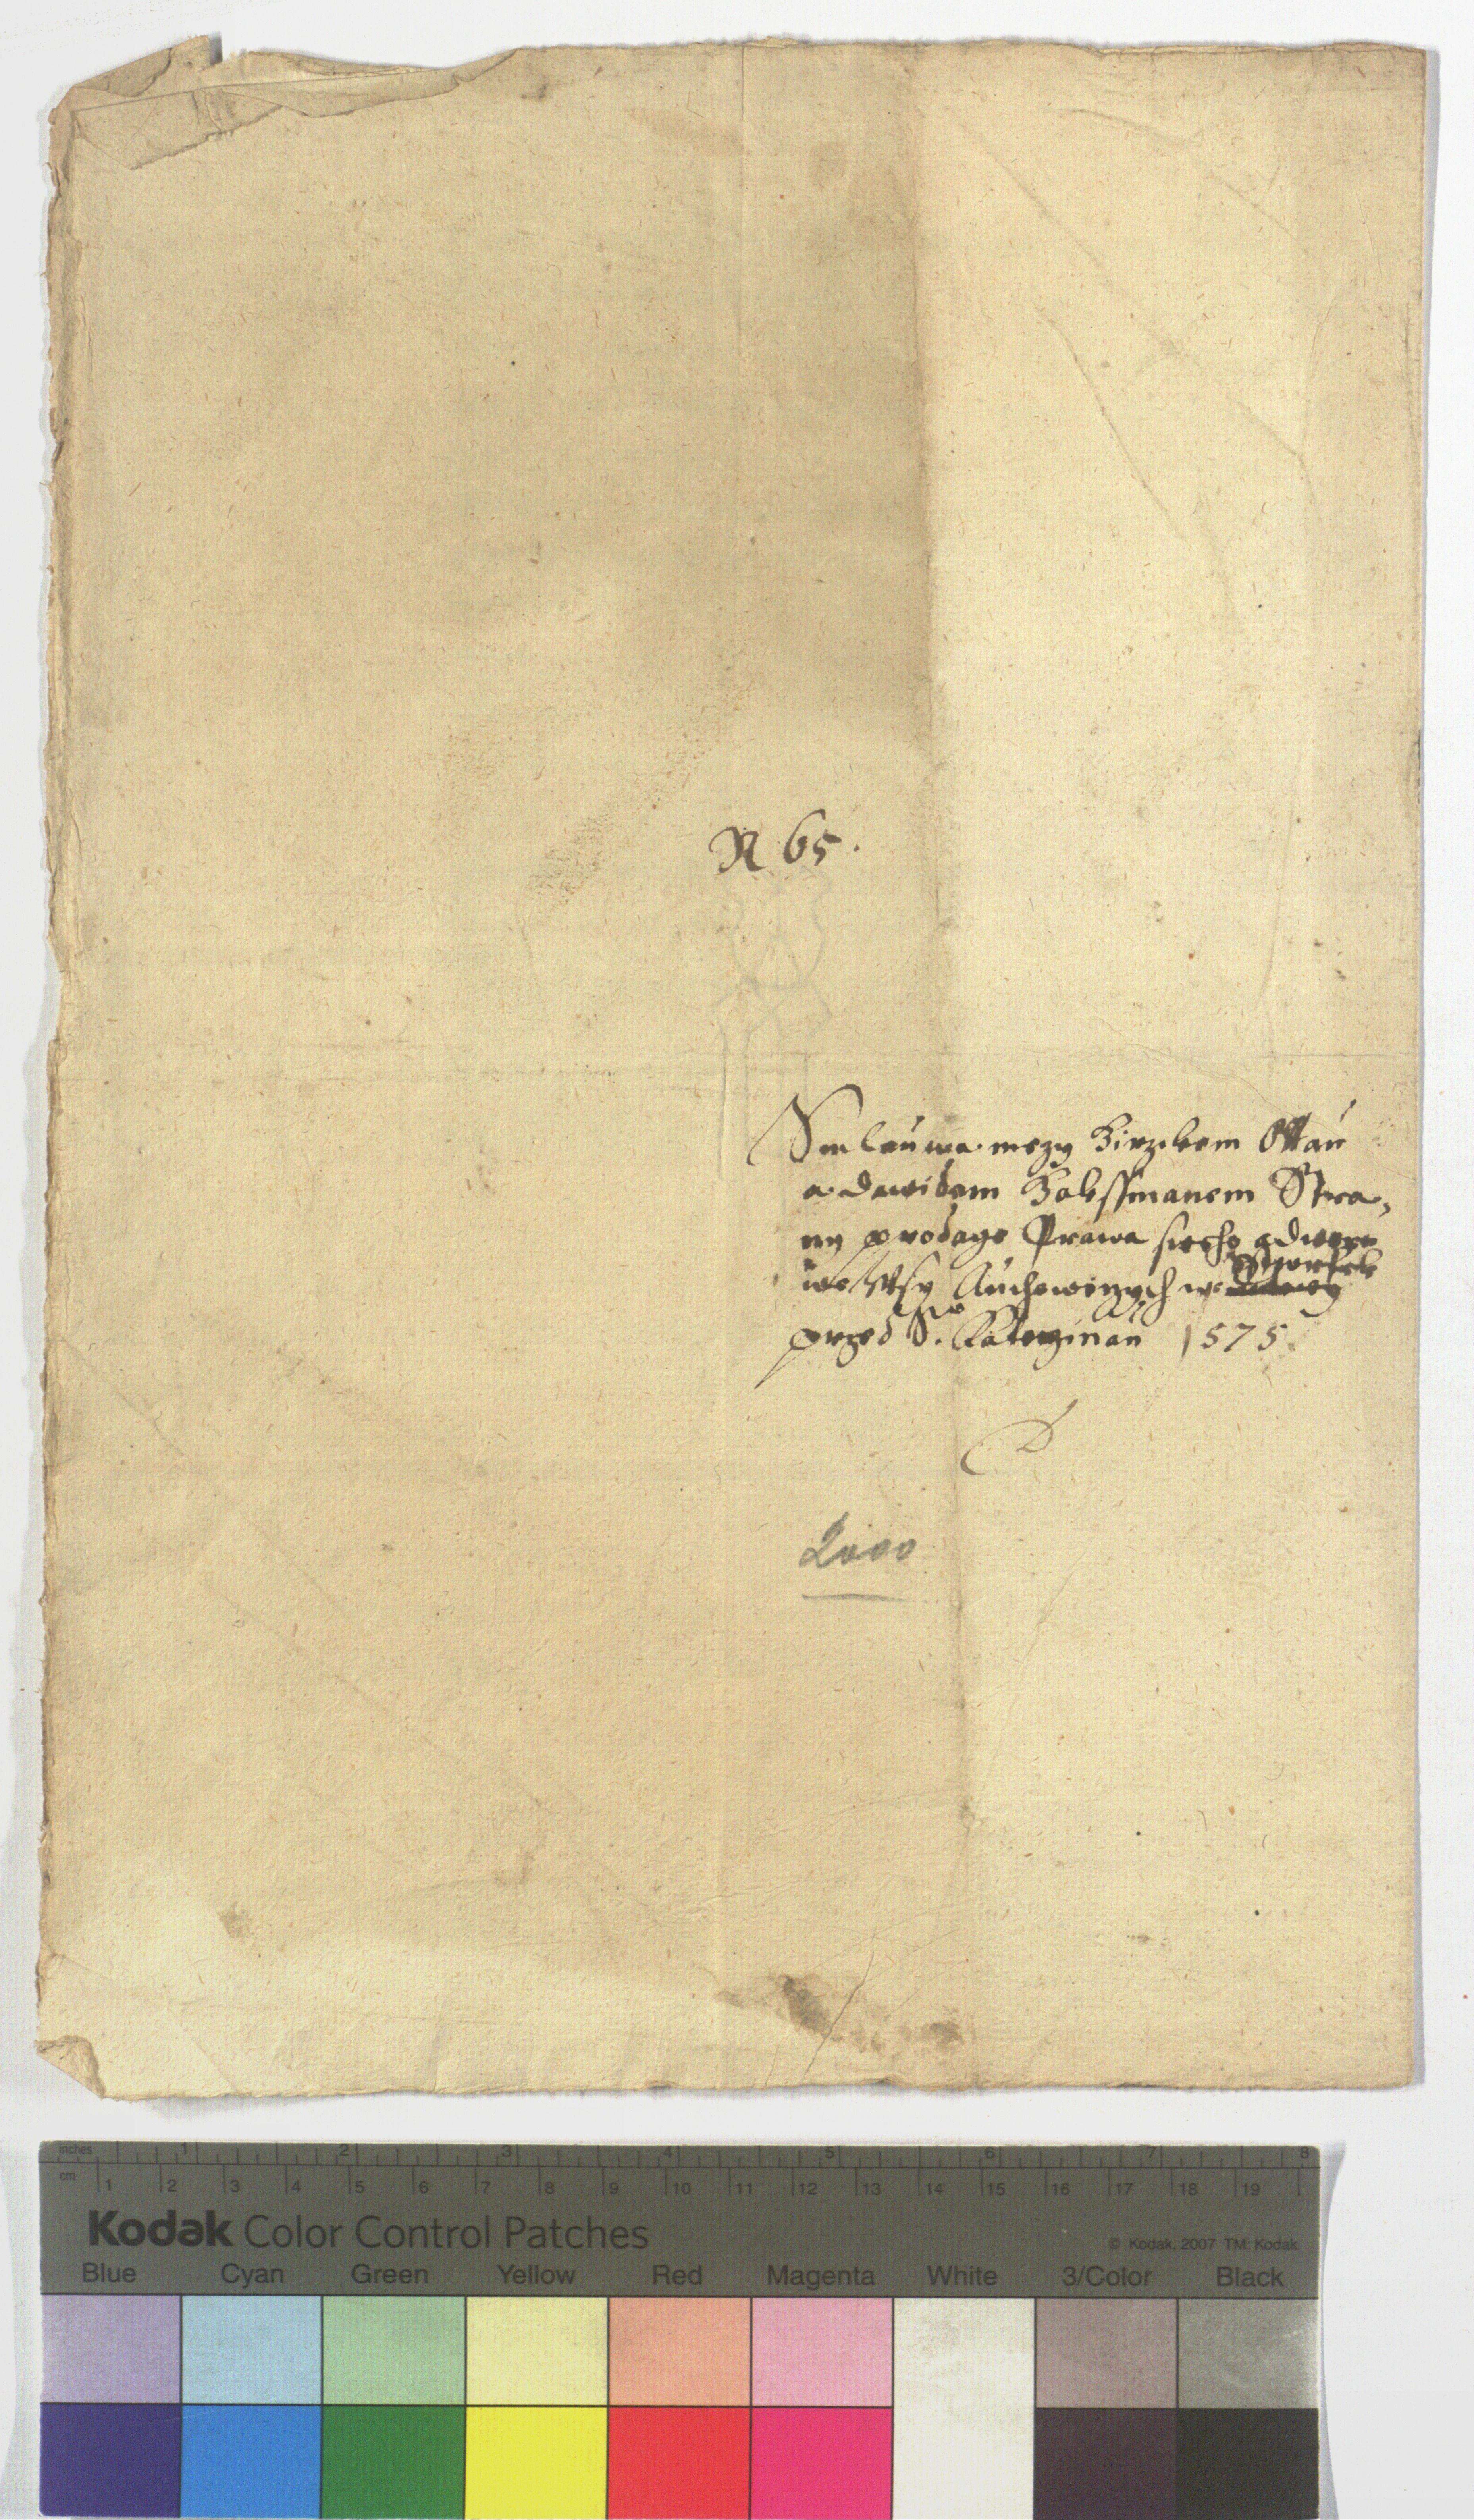 N 65.
Smlauwa mezy Jirzikem Ottau
a Dawidem Jakssmanem Stra,
ny prodage Prawa sweho
we Wsy Auhowiczych we Stwrtek
przed S. Katerzinau 1575.
2000
inches 1 2 3 4 5 6 7 8
cm 1 2 3 4 5 6 7 8 9 10 11 12 13 14 15 16 17 18 19
Kodak Color Control Patches
© Kodak, 2007 TM: Kodak
Blue Cyan Green Yellow Red Magenta White 3/Color Black